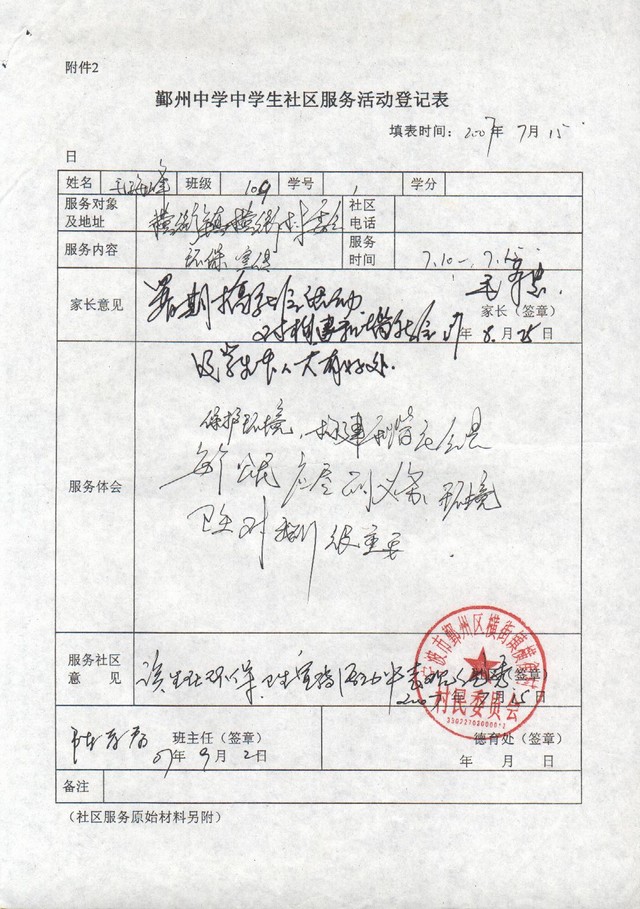 附件2
鄞州中学中学生社区服务活动登记表
填表时间：2007年7月15
日
姓名 班级 109 学号 1 学分
服务对象及地址 横街镇横街村委 社区电话
服务内容 环保宣传 服务时间 7.10-7.15
家长意见 暑期搞社会活动
对构建和谐社会
家长（签章）
07年8月25日
的学生本人大有好处.
服务体会
保护环境，构建和谐社会是
每个公民应尽的义务，环境
卫生对我们很重要.
服务社区意见 该生在环保、卫生宣传活动中表现优秀（签章）
2007年7月15日
宁波市鄞州区横街镇横街村
村民委员会
班主任（签章）
07年9月2日
德育处（签章）
年 月 日
备注
（社区服务原始材料另附）